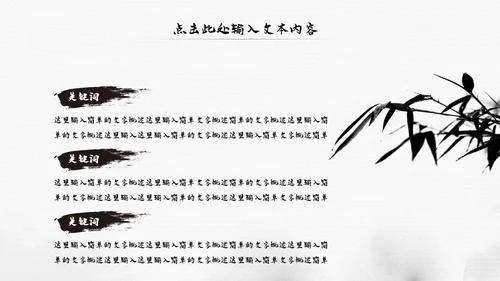 点击此处输入文本内容
关键词
这里输入简单的文字概述这里输入简单文字概述简单的文字概述这里输入简单
单的文字概述这里输入这里输入简单的文字概述这里输入简单的文字概述简单
关键词
这里输入简单的文字概述这里输入简单文字概述简单的文字概述这里输入简单
单的文字概述这里输入这里输入简单的文字概述这里输入简单的文字概述简单
关键词
这里输入简单的文字概述这里输入简单文字概述简单的文字概述这里输入简单
单的文字概述这里输入这里输入简单的文字概述这里输入简单的文字概述简单